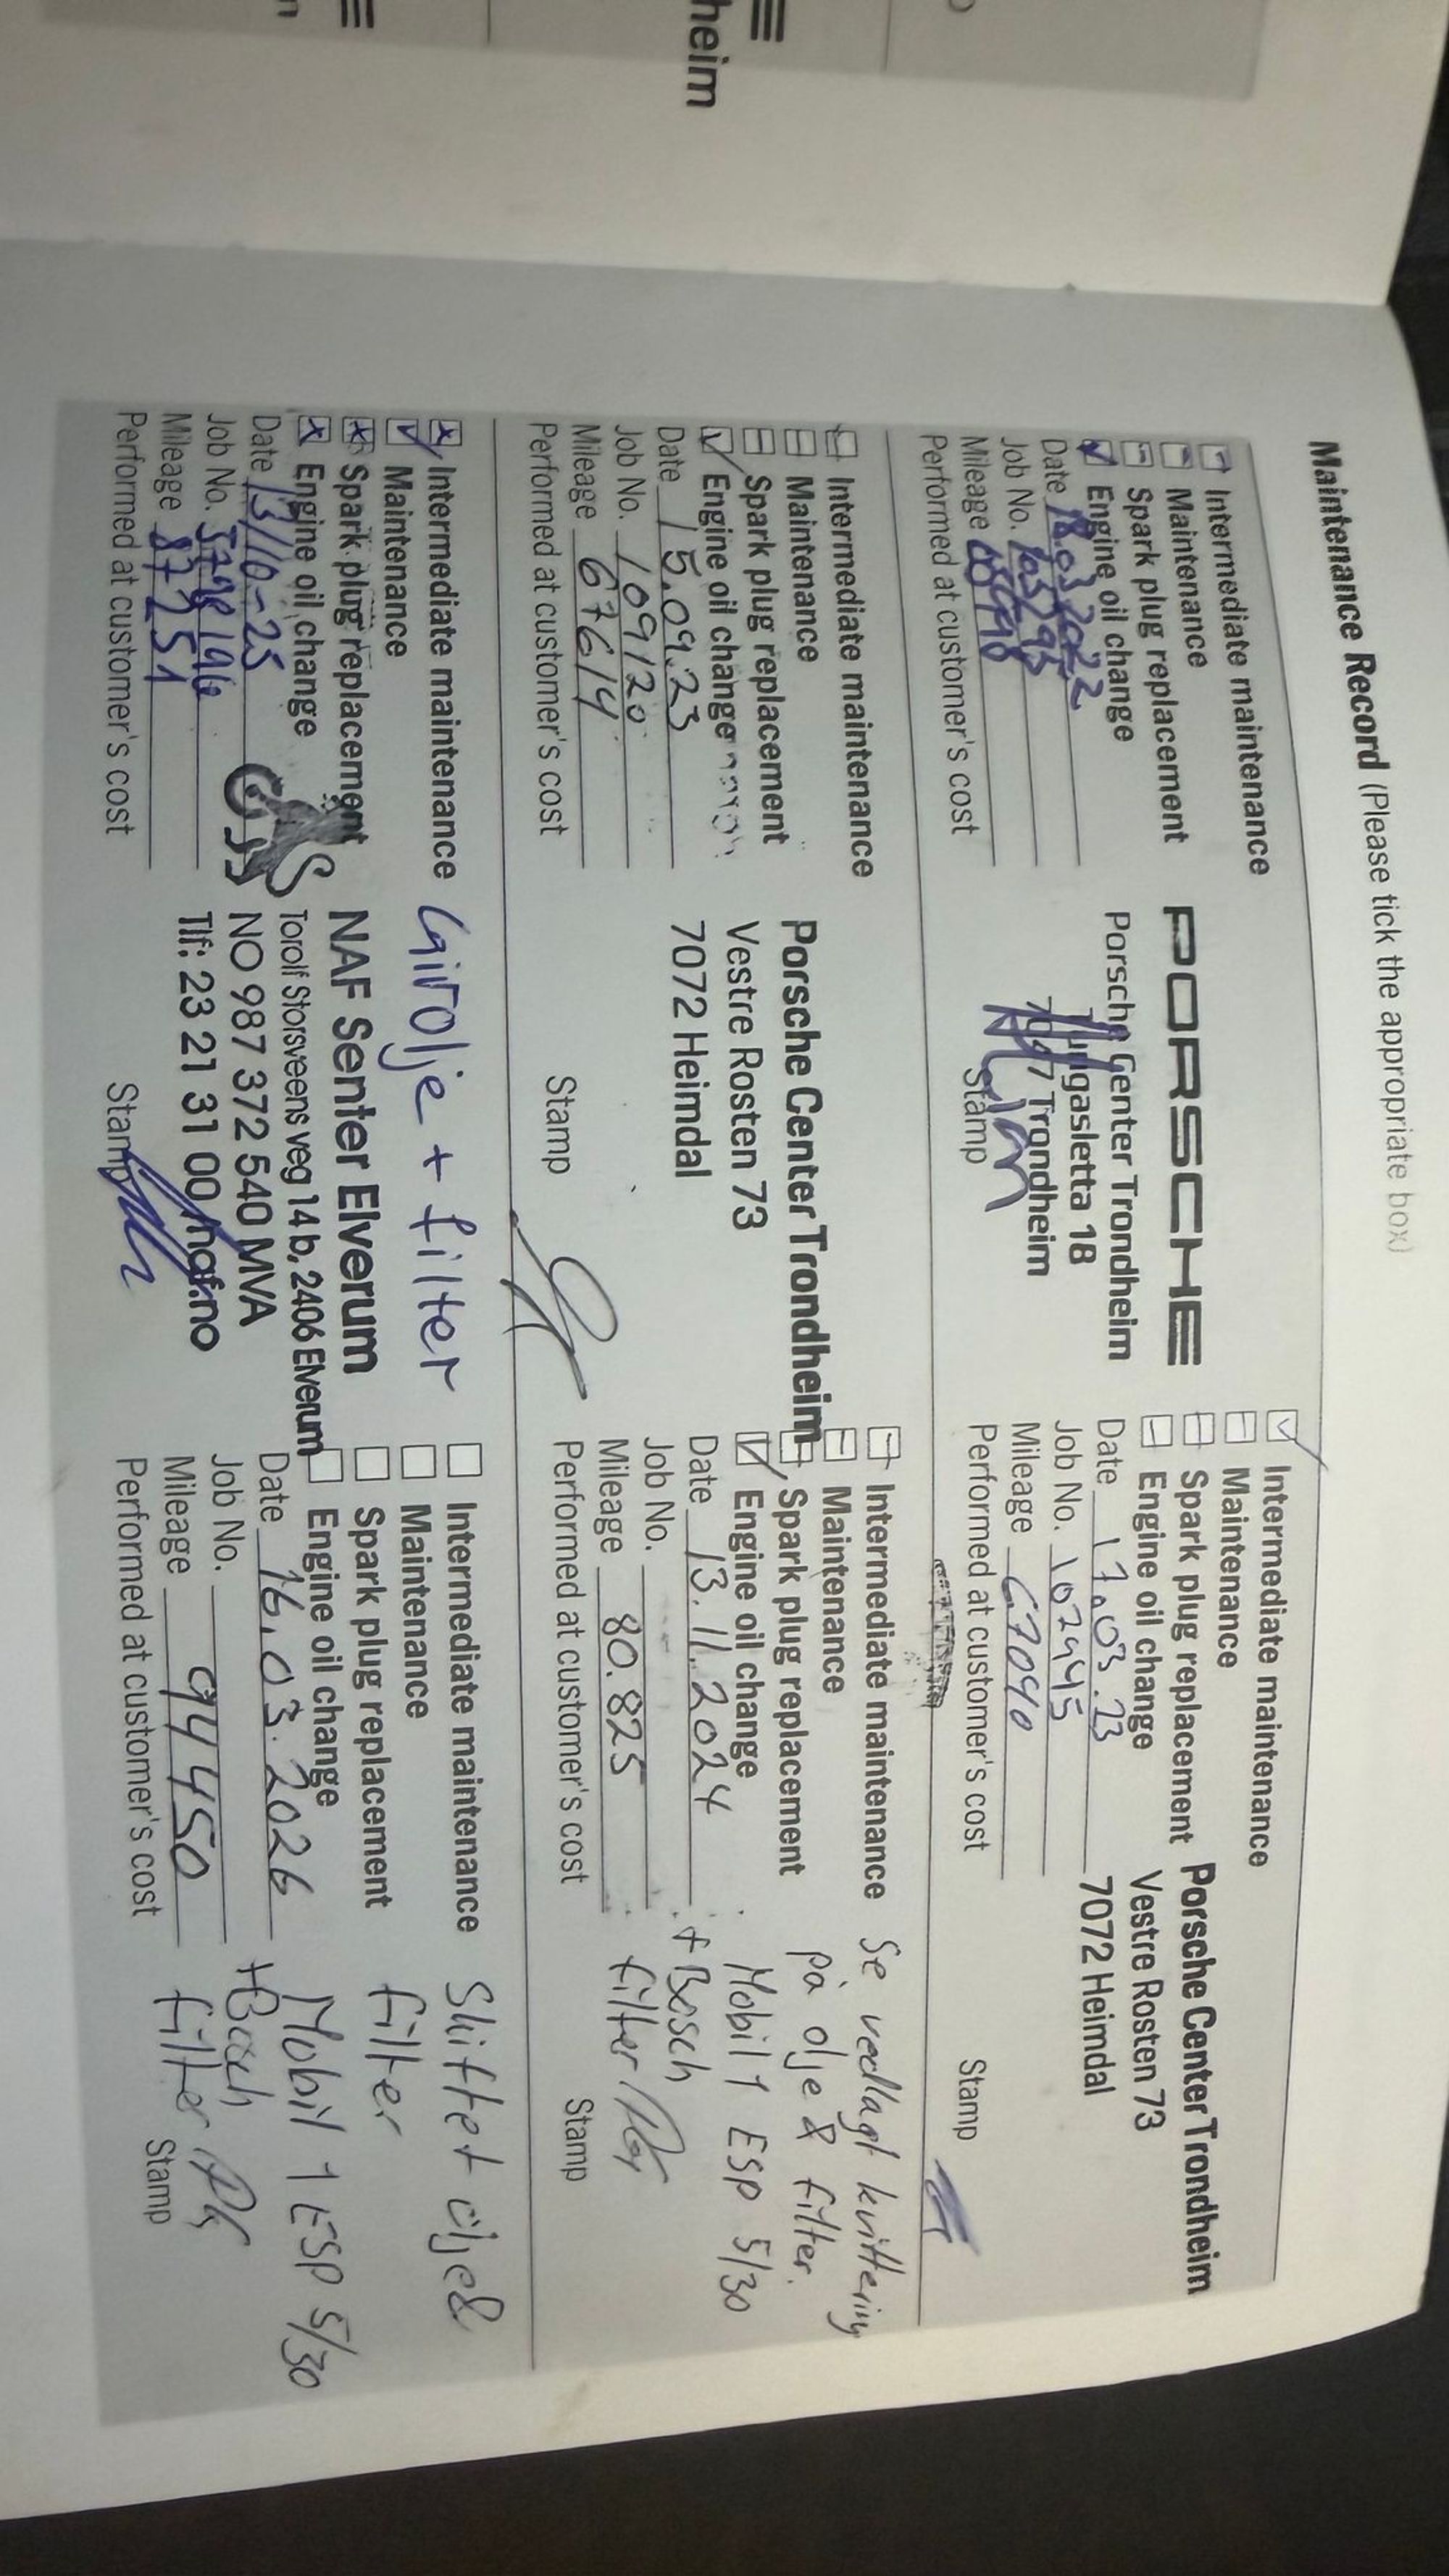 heim
Maintenance Record (Please tick the appropriate box)
Intermediate maintenance
Maintenance
Spark plug replacement
Engine oil change
Date 18.03.2022
Job No. 103293
Mileage
Performed at customer's cost
PORSCHE
Porsche Center Trondheim
gasletta 18
Trondheim
Stamp
Intermediate maintenance
Maintenance
Spark plug replacement
Engine oil change
Date 17.03.23
Job No. 107445
Mileage 67040
Performed at customer's cost
Porsche Center Trondheim
Vestre Rosten 73
7072 Heimdal
Stamp
Intermediate maintenance
Maintenance
Spark plug replacement
Engine oil change
Date 15.09.23
Job No. 109120
Mileage 67614
Performed at customer's cost
Porsche Center Trondheim
Vestre Rosten 73
7072 Heimdal
Stamp
Intermediate maintenance
Maintenance
Spark plug replacement
Engine oil change
Date 13.11.2024
Job No.
Mileage 80.825
Performed at customer's cost
Se vedlagt kvittering
på olje & filter.
Mobil 1 ESP 5/30
+ Bosch
filter
Stamp
Intermediate maintenance
Maintenance
Spark plug replacement
Engine oil change
Date 13/10-25
Job No.
Mileage 87251
Performed at customer's cost
Girolje + filter
NAF Senter Elverum
Torolf Storsveens veg 14b, 2406 Elverum
NO 987 372 540 MVA
Tlf: 23 21 31 00 naf.no
Stamp
Intermediate maintenance
Maintenance
Spark plug replacement
Engine oil change
Date 16.03.2026
Job No.
Mileage 94450
Performed at customer's cost
Skiftet olje &
filter
Mobil 1 ESP 5/30
+Bosch
filter
Stamp